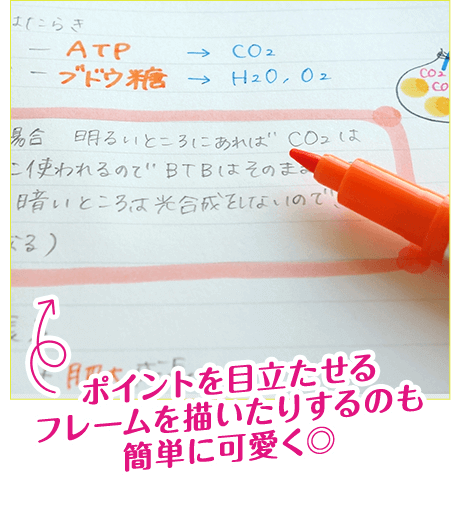 はたらき
ー ATP → CO2
ー ブドウ糖 → H2O, O2
CO2
CO
場合 明るいところにあれば CO2は
に使われるので BTBはそのまま
暗いところは光合成をしないので
なる)
ポイントを目立たせる
フレームを描いたりするのも
簡単に可愛く◎